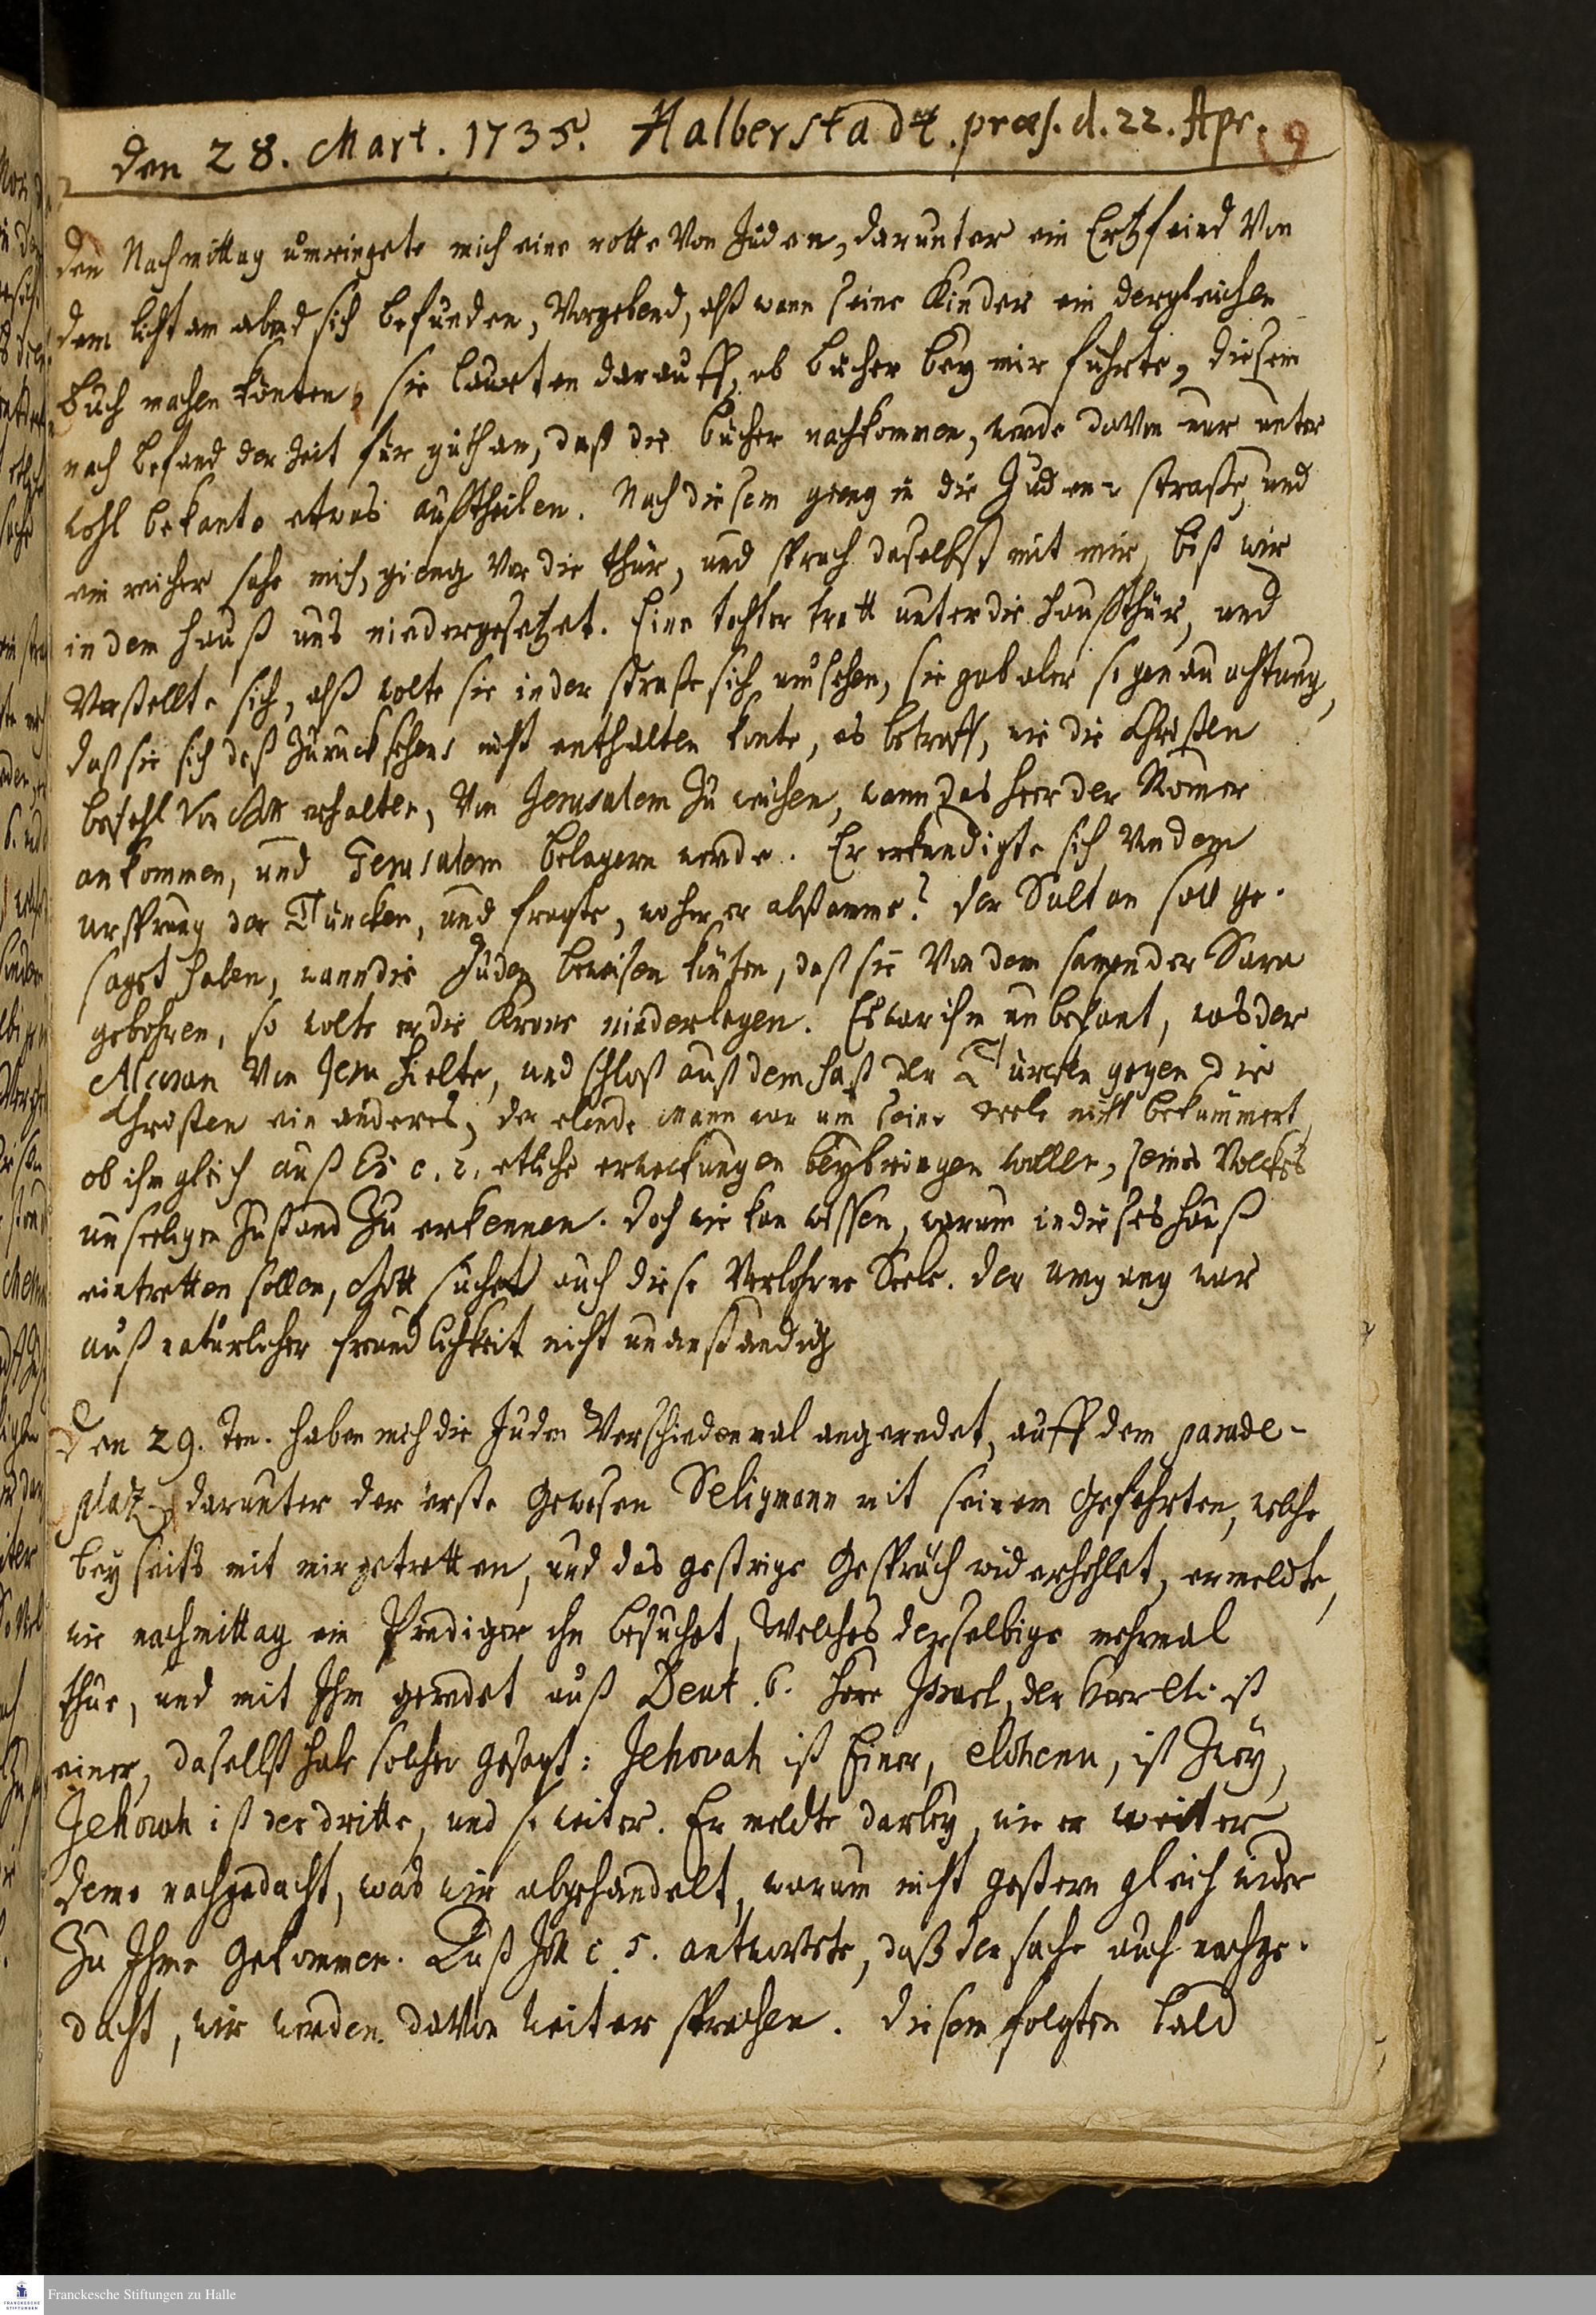 den 28. Mart. 1735. Halberstadt. præs. d. 22. Apr. 9
den Nachmittag umringete mich eine rotte von Juden, darunter ein Ertzfeind von
dem licht am abend sich befunden, vorgebend, alß wann seine Kinder ein dergleichen
buch machen könten, sie laureten darauff, ob bücher bey mir führte, diesem
nach befand der Zeit für guth an, daß die bücher nachkommen, werde davon nur unter
wohl bekante etwas außtheilen. Nach diesem gieng in die Juden-straße, und
ein reicher sahe mich, gieng vor die thür, und sprach daselbst mit mir, biß wir
in dem hauß uns niedergesetzet. Eine tochter tratt unter die haußthür, und
verstellte sich, alß wolte sie in der straße sich umsehen, sie gab aber so genau achtung,
daß sie sich deß zuruck sehens nicht enthalten konte, es betraff, wie die Christen
befehl von Gott erhalten, von Jerusalem zu weichen, wann das heer der Römer
ankommen, und Jerusalem belagern werde. Er erkundigte sich von dem
ursprung der Türcken, und fragte, woher er abstamme? der Sultan soll ge-
sagt haben, wann die Juden beweisen könten, daß sie von dem samen der Sara
gebohren, so wolte er die Krone niederlegen. Es war ihm unbekant, was der
Alcoran von Jesu hielte, und schloß auß dem haß der Türcken gegen die
Christen ein anderes, der elende mann war um seine seele nicht bekümmert,
ob ihm gleich auß Es c. 2. etliche erweckungen beybringen wollen, seines Volckes
unseeligen Zustand zu erkennen. doch wie kan wissen, warum in dieses hauß
eintretten sollen, Gott suchet auch diese verlohrne Seele. der umgang war
auß natürlicher freundlichkeit nicht unanständig
Den 29. ten. haben mich die Juden verschiedenmal angeredet, auff dem parade-
platz, darunter der erste gewesen Seligmann mit seinem Gefehrten, welche
beyseits mit mir getretten, und das gestrige Gespräch widerhohlet, er meldte,
wie nachmittag ein Prediger ihn besuchet, Welches derselbige mehrmal
thue, und mit Ihm geredet auß Deut. 6. höre Israel, der herr ist
einer, daselbst habe solcher gesagt: Jehovah ist Einer, elohenu, ist Zwey,
Jehowah ist der dritte, und so weiter. Er meldte darbey, wie er weiter
deme nachgedacht, was wir abgehandelt, warum nicht gestern gleich wider
zu Ihme gekommen. Auß c. 5. antwortete, daß der sache auch nachge-
dacht, wir werden davon weiter sprechen. diesem folgten bald
Franckesche Stiftungen zu Halle